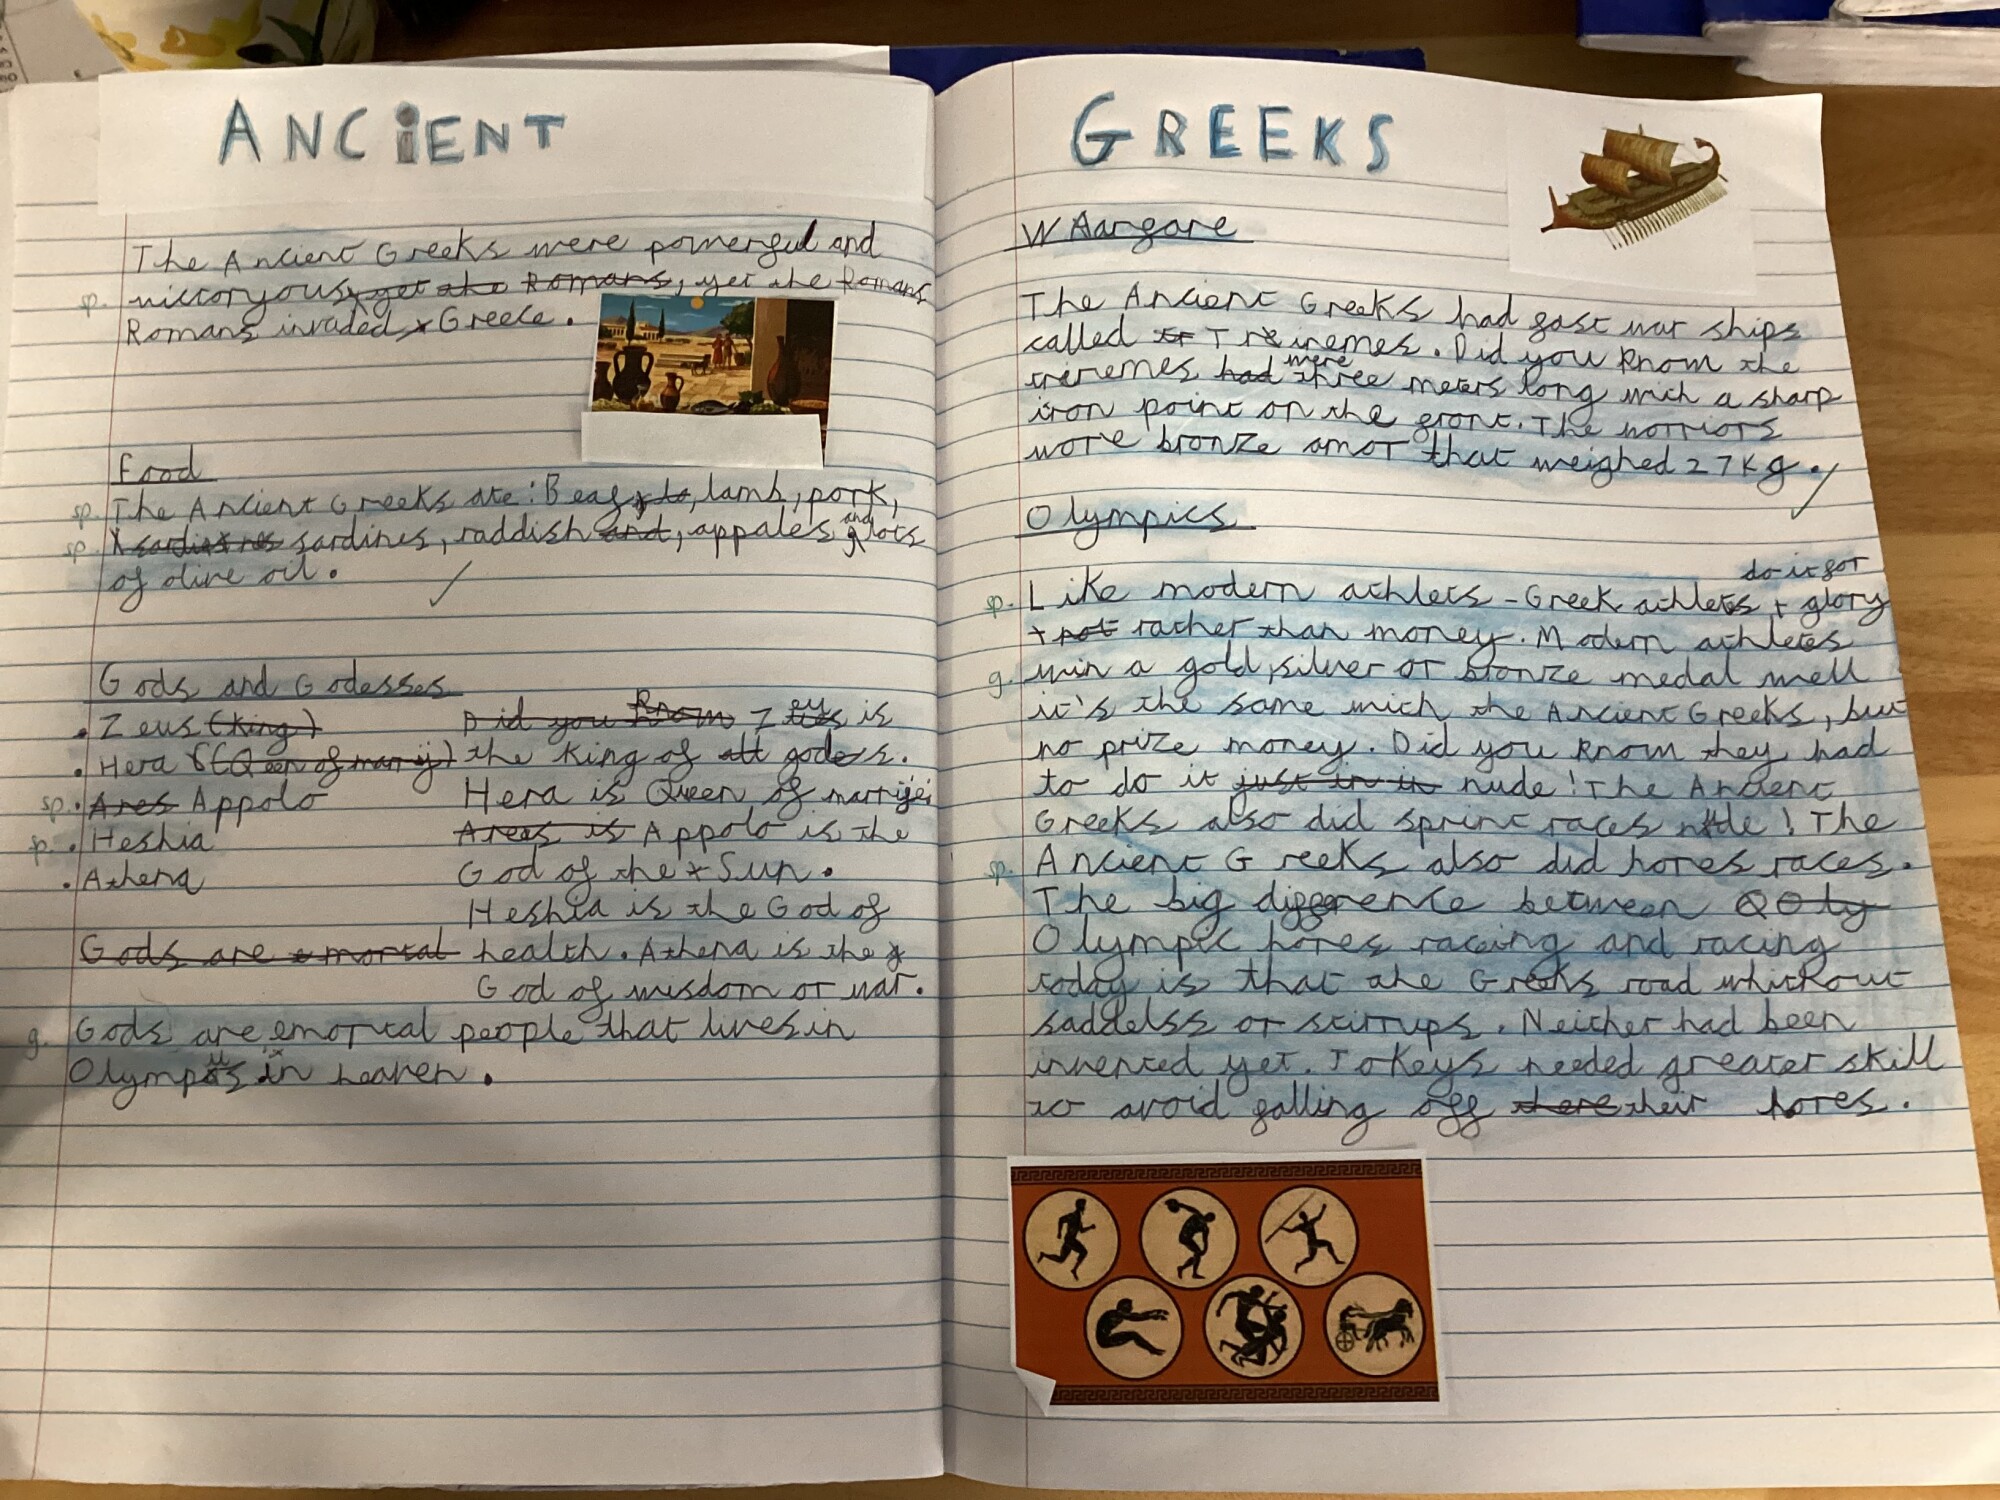 ANCiENT
The Ancient Greeks were powerful and
sp. victoryous, yet the Romans, yet the Romans
Romans invaded Greece.
Food
sp. The Ancient Greeks ate: Beaf, lamb, pork,
sp. sardines, raddish and, appales and lots
of olive oil.
Gods and Godesses
• Zeus (King)
• Hera (Qeen of marrij)
sp. • Ares Appolo
sp. • Heshia
• Athena
Did you know Zeus is
the King of all gods.
Hera is Queen of marrije.
Arees is Appolo is the
God of the Sun.
Heshia is the God of
health. Athena is the
God of wisdom or war.
Gods are mortal
g. Gods are emortal people that lives in
Olympus in heaven.
GREEKS
WAarfare
The Ancient Greeks had fast war ships
called Triremes. Did you know the
triremes had were three meters long with a sharp
iron point on the front. The worriors
wore bronze amor that weighed 27kg.
Olympics
do it for
sp. Like modern athlets - Greek athletes + glory
+ not rather than money. Modern athletes
g. win a gold, silver or bronze medal well
it's the same with the Ancient Greeks, but
no prize money. Did you know they had
to do it just in it nude! The Ancient
Greeks also did sprint races nude! The
sp. Ancient Greeks also did hores races.
The big difference between Oly
Olympic hores racing and racing
today is that the Greeks road whithout
saddelss or stirrups. Neither had been
invented yet. Jokeys needed greater skill
to avoid falling off there their hores.